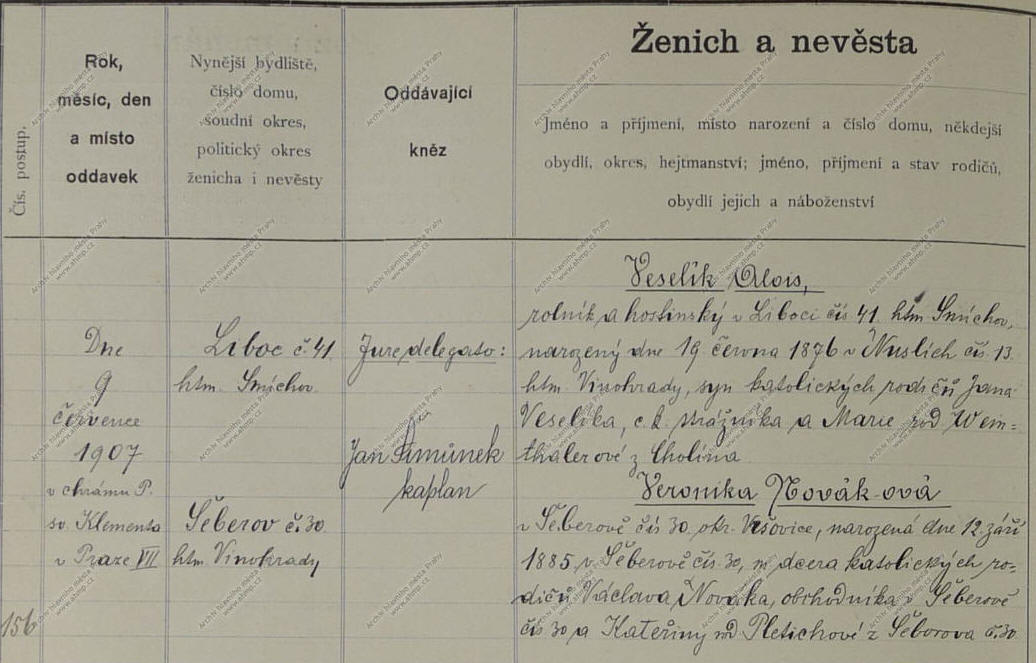 Čís. postup.
Rok,
měsíc, den
a místo
oddavek
Nynější bydliště,
číslo domu,
soudní okres,
politický okres
ženicha i nevěsty
Oddávající
kněz
Ženich a nevěsta
Jméno a příjmení, místo narození a číslo domu, někdejší
obydlí, okres, hejtmanství; jméno, příjmení a stav rodičů,
obydlí jejich a náboženství
156
Dne
9
července
1907
v chrámu P.
sv. Klementa
v Praze VII
Liboc č. 41
htm. Smíchov
Šeberov č. 30
htm. Vinohrady
Jure delegato:
Jan
kaplan
Veselík Alois,
rolník a hostinský v Liboci čís 41 htm Smíchov,
narozený dne 19 června 1876 v Nuslích čís. 13
htm. Vinohrady, syn katolických rodičů Jana
Veselíka, c. k. strážníka a Marie rod Wein=
thalerové z Cholína
Veronika Novák-ová
v Šeberově čís 30. okr. Vršovice, narozená dne 12. září
1885 v Šeberově čís. 30, m dcera katolických ro=
dičů Václava Nováka, obchodníka v Šeberově
čís 30 a Kateřiny rod Pletichové z Šeberova č. 30
Archiv hlavního města Prahy
www.ahmp.cz